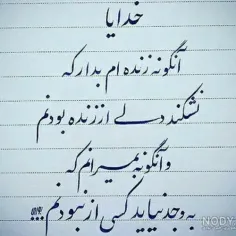 خدایا
آنگونه زنده ام بدار که
نشکند دلے از زنده بودنم
و آنگونه بمیرانم که
به وجد نیاید کسی از نبودنم...
NODY